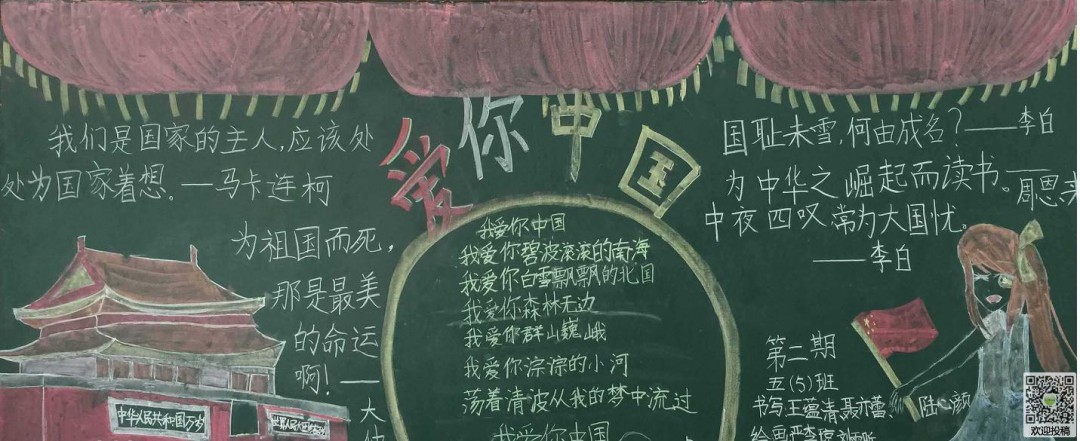 爱你中国
我们是国家的主人,应该处
处为国家着想。—马卡连柯
为祖国而死,
那是最美
的命运
啊!—
大
中华人民共和国万岁
我爱你中国
我爱你碧波滚滚的南海
我爱你白雪飘飘的北国
我爱你森林无边
我爱你群山巍峨
我爱你淙淙的小河
荡着清波从我的梦中流过
我爱你中国
国耻未雪,何由成名?——李白
为中华之崛起而读书。——周恩来
中夜四叹,常为大国忧。
——李白
第二期
五(5)班
书写:王蕴清聂亦蕾、陆心颜
欢迎投稿